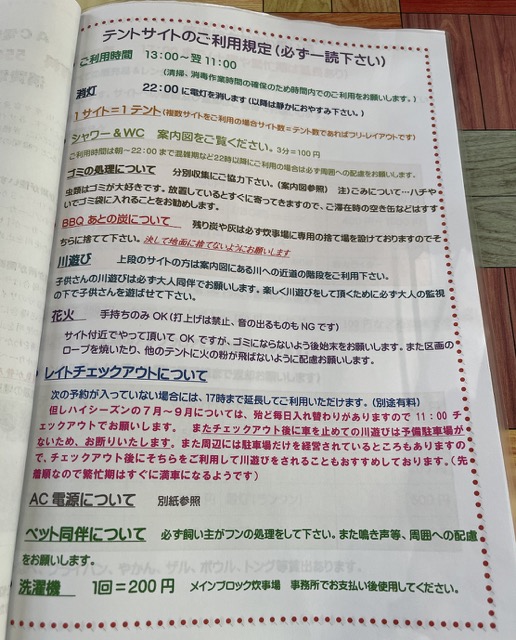 テントサイトのご利用規定(必ず一読下さい)
ご利用時間 13:00～翌11:00
(清掃、消毒作業時間の確保のため時間内でのご利用をお願いします。)
消灯 22:00に電灯を消します(以降は静かにおやすみ下さい。)
1サイト=1テント(複数サイトをご利用の場合サイト数=テント数であればフリーレイアウトです)
シャワー&WC 案内図をご覧ください。3分=100円
ご利用時間は朝～22:00まで混雑期など22時以降にご利用の場合は必ず周囲への配慮をお願いします。
ゴミの処理について 分別収集にご協力下さい。(案内図参照) 注)ごみについて…ハチや
虫類はゴミが大好きです。放置しているとすぐに寄ってきますので、ご滞在時の空き缶などはすす
いでゴミ袋に入れることをお勧めします。
BBQ あとの炭について 残り炭や灰は必ず炊事場に専用の捨て場を設けておりますのでそ
ちらに捨てて下さい。決して地面に捨てないようにお願いします
川遊び 上段のサイトの方は案内図にある川への近道の階段をご利用下さい。
子供さんの川遊びは必ず大人同伴でお願いします。楽しく川遊びをして頂くために必ず大人の監視
の下で子供さんを遊ばせて下さい。
花火 手持ちのみOK(打上げは禁止、音の出るものもNGです)
サイト付近でやって頂いてOKですが、ゴミにならないよう後始末をお願いします。また区画の
ロープを焼いたり、他のテントに火の粉が飛ばないように配慮お願いします。
レイトチェックアウトについて
次の予約が入っていない場合には、17時まで延長してご利用いただけます。(別途有料)
但しハイシーズンの7月～9月については、殆ど毎日入れ替わりがありますので11:00チ
ェックアウトでお願いします。 またチェックアウト後に車を止めての川遊びは予備駐車場が
ないため、お断りいたします。また周辺には駐車場だけを経営されているところもありますの
で、チェックアウト後にそちらをご利用して川遊びをされることもおすすめしております。(先
着順なので繁忙期はすぐに満車になるようです)
AC電源について 別紙参照
ペット同伴について 必ず飼い主がフンの処理をして下さい。また鳴き声等、周囲への配慮
をお願いします。
洗濯機 1回=200円 メインブロック炊事場 事務所でお支払い後使用してください。